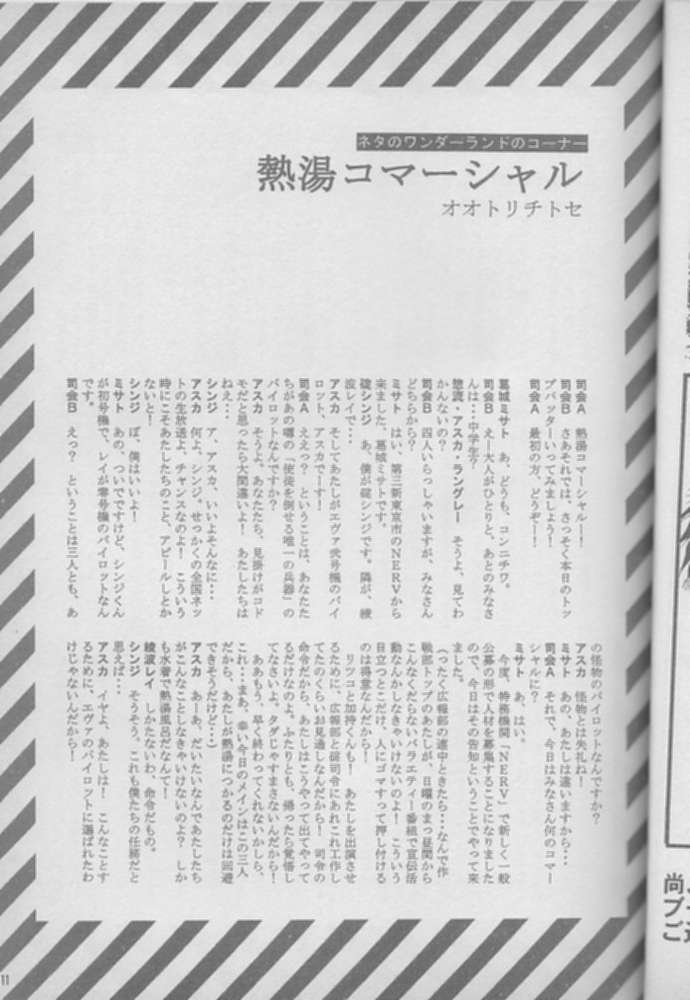 ネタのワンダーランドのコーナー
熱湯コマーシャル
オオトリチトセ
司会A 熱湯コマーシャル!!
司会B さあそれでは、さっそく本日のトッ
プバッターいってみましょう!
司会A 最初の方、どうぞー!!
葛城ミサト あ、どうも、コンニチワ。
司会B えー大人がひとりと、あとのみなさ
んは…中学生?
惣流・アスカ・ラングレー そうよ、見てわ
かんないの?
司会B 四人いらっしゃいますが、みなさん
どちらから?
ミサト はい、第三新東京市のNERVから
来ました、葛城ミサトです。
碇シンジ あ、僕が碇シンジです。隣が、綾
波レイで…
アスカ そしてあたしがエヴァ弐号機のパイ
ロット、アスカでーす!
司会A ええっ? ということは、あなたた
ちがあの噂の「使徒を倒せる唯一の兵器」の
パイロットなんですか?
アスカ そうよ、あなたたち、見掛けがコド
モだと思ったら大間違いよ! あたしたちは
ねえ…
シンジ ア、アスカ、いいよそんなに…
アスカ 何よ、シンジ。せっかくの全国ネッ
トの生放送よ、チャンスなのよ! こういう
時にこそあたしたちのこと、アピールしとか
ないと!
シンジ ぼ、僕はいいよ!
ミサト あの、ついでですけど、シンジくん
が初号機で、レイが零号機のパイロットなん
です。
司会B えっ? ということは三人とも、あ
の怪物のパイロットなんですか?
アスカ 怪物とは失礼ね!
ミサト あの、あたしは違いますから…
司会A それで、今日はみなさん何のコマー
シャルに?
ミサト あ、はい。
今度、特務機関「NERV」で新しく一般
公募の形で人材を募集することになりました
ので、今日はその告知ということでやって来
ました。
(ったく広報部の連中ときたら…なんで作
戦部トップのあたしが、日曜のまっ昼間から
こんなくだらないバラエティー番組で宣伝活
動なんかしなきゃいけないのよ! こういう
目立つとこだけ、人にゴマすって押し付ける
のは得意なんだから!
リツコと加持くんも! あたしを出演させ
るために、広報部と碇司令にあれこれ工作し
てたのくらいお見通しなんだから! 司令の
命令だから、あたしはこうやって出てやって
るだけなのよ。ふたりとも、帰ったら覚悟し
てなさいよ、タダじゃすまさないんだから!
ああもう、早く終わってくれないかしら、
これ…まあ、幸い今日のメインはこの三人
だから、あたしが熱湯につかるのだけは回避
できそうだけど…)
アスカ あーあ、だいたいなんであたしたち
がこんなことしなきゃいけないのよ? しか
も水着で熱湯風呂だなんて!
綾波レイ しかたないわ、命令だもの。
シンジ そうそう。これも僕たちの任務だと
思えば…
アスカ イヤよ、あたしは! こんなことす
るために、エヴァのパイロットに選ばれたわ
けじゃないんだから!
11
尚